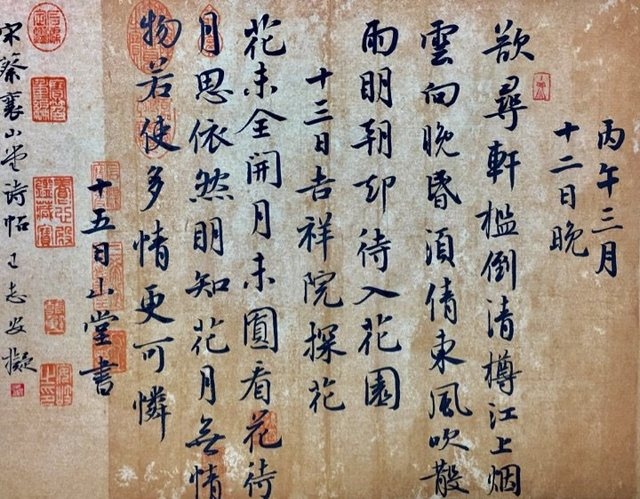 丙午三月
十二日晚
欲尋軒檻倒清樽江上烟
雲向晚昏須倩東風吹散
雨明朝却待入花園
十三日吉祥院探花
花未全開月未圓看花待
月思依然明知花月無情
物若使多情更可憐
十五日山堂書
宋蔡襄山堂诗帖王志安擬